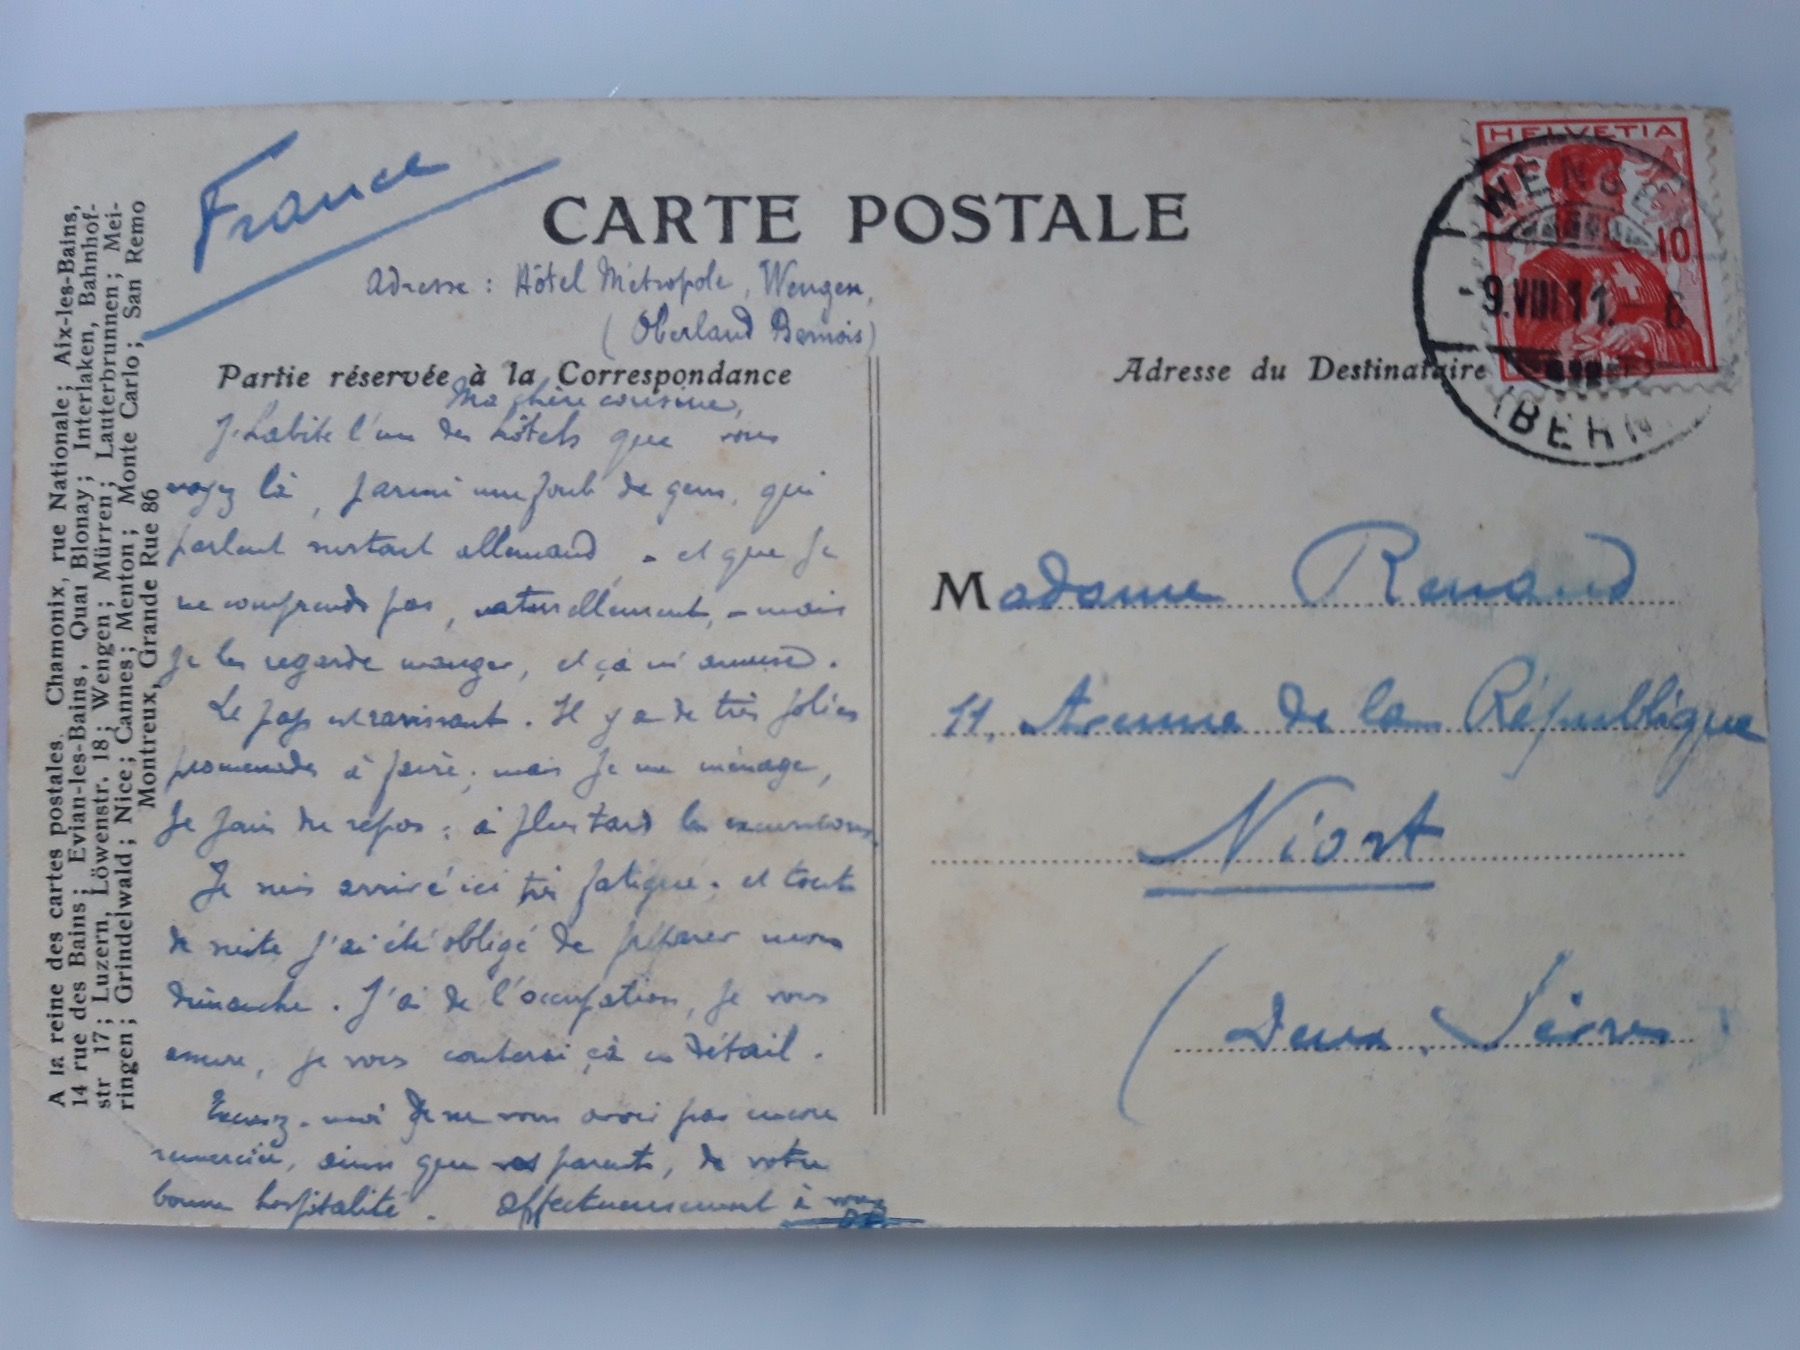 France
CARTE POSTALE
Adresse : Hôtel Métropole, Wengen,
(Oberland Bernois)
Partie réservée à la Correspondance
Ma chère cousine,
J'habite l'un des hôtels que vous
voyez là, parmi une foule de gens, qui
parlent surtout allemand - et que je
ne comprends pas, naturellement, - mais
je les regarde manger, et çà m'amuse.
Le pays est ravissant. Il y a de très jolies
promenades à faire, mais je me ménage,
je fais du repos : à plus tard les excursions.
Je suis arrivé ici très fatigué. et tout
de suite j'ai été obligé de préparer mon
dimanche. J'ai de l'occupation, je vous
assure, je vous conterai çà en détail.
Excusez-moi de ne vous avoir pas encore
remerciée, ainsi que vos parents, de votre
bonne hospitalité. Affectueusement à vous
Adresse du Destinataire
Madame Renaud
11, Avenue de la République
Niort
(Deux Sèvres
HELVETIA
10
WENGEN
-9.VIII.11.-6
(BERN)
A la reine des cartes postales. Chamonix, rue Nationale; Aix-les-Bains,
14 rue des Bains; Evian-les-Bains, Quai Blonay; Interlaken, Bahnhof-
str 17; Luzern, Löwenstr. 18; Wengen; Mürren; Lauterbrunnen; Mei-
ringen; Grindelwald; Nice; Cannes; Menton; Monte Carlo; San Remo
Montreux, Grande Rue 86